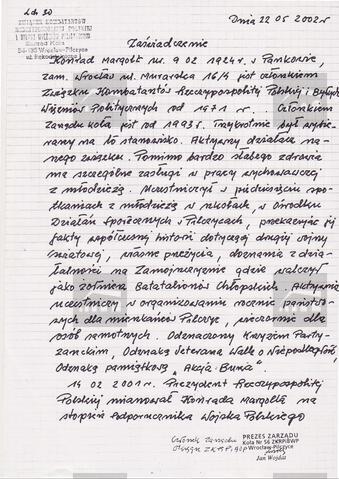 Ldz 30
ZWIĄZEK KOMBATANTÓW
RZECZYPOSPOLITEJ POLSKIEJ
I BYŁYCH WIĘŹNIÓW POLITYCZNYCH
Zarząd Koła
54-130 Wrocław-Pilczyce
Dnia 22 05 2002 r
Zaświadczenie
Konrad Margott ur. 9 02 1924 r. w Pankowie,
zam. Wrocław ul. Murarska 16/4 jest członkiem
Związku Kombatantów Rzeczypospolitej Polskiej i Byłych
Więźniów Politycznych od 1971 r. Członkiem
Zarządu koła jest od 1993 r. Trzykrotnie był wybie-
rany na to stanowisko. Aktywny działacz na-
szego związku. Pomimo bardzo słabego zdrowia
ma szczególne zasługi w pracy wychowawczej
z młodzieżą. Uczestniczył w pięćdziesięciu spot-
kaniach z młodzieżą w szkołach, w Ośrodku
Działań Społecznych w Pilczycach, przekazując jej
fakty współczesnej historii dotyczącej drugiej wojny
światowej, własne przeżycia, doznania z dzia-
łalności na Zamojszczyźnie gdzie walczył
jako żołnierz Batalionów Chłopskich. Aktywnie
uczestniczy w organizowaniu rocznic państwo-
wych dla mieszkańców Pilczyc, wieczornic dla
osób samotnych. Odznaczony Krzyżem Party-
zanckim, Odznaką Weterana Walk o Niepodległość,
Odznaką pamiątkową „Akcja Burza".
14 02 2001 r. Prezydent Rzeczypospolitej
Polskiej mianował Konrada Margotta na
stopień podporucznika Wojska Polskiego
Członek Zarządu
PREZES ZARZĄDU
Koła Nr 56 ZKRPiBWP
Wrocław-Pilczyce
Jan Wojdas